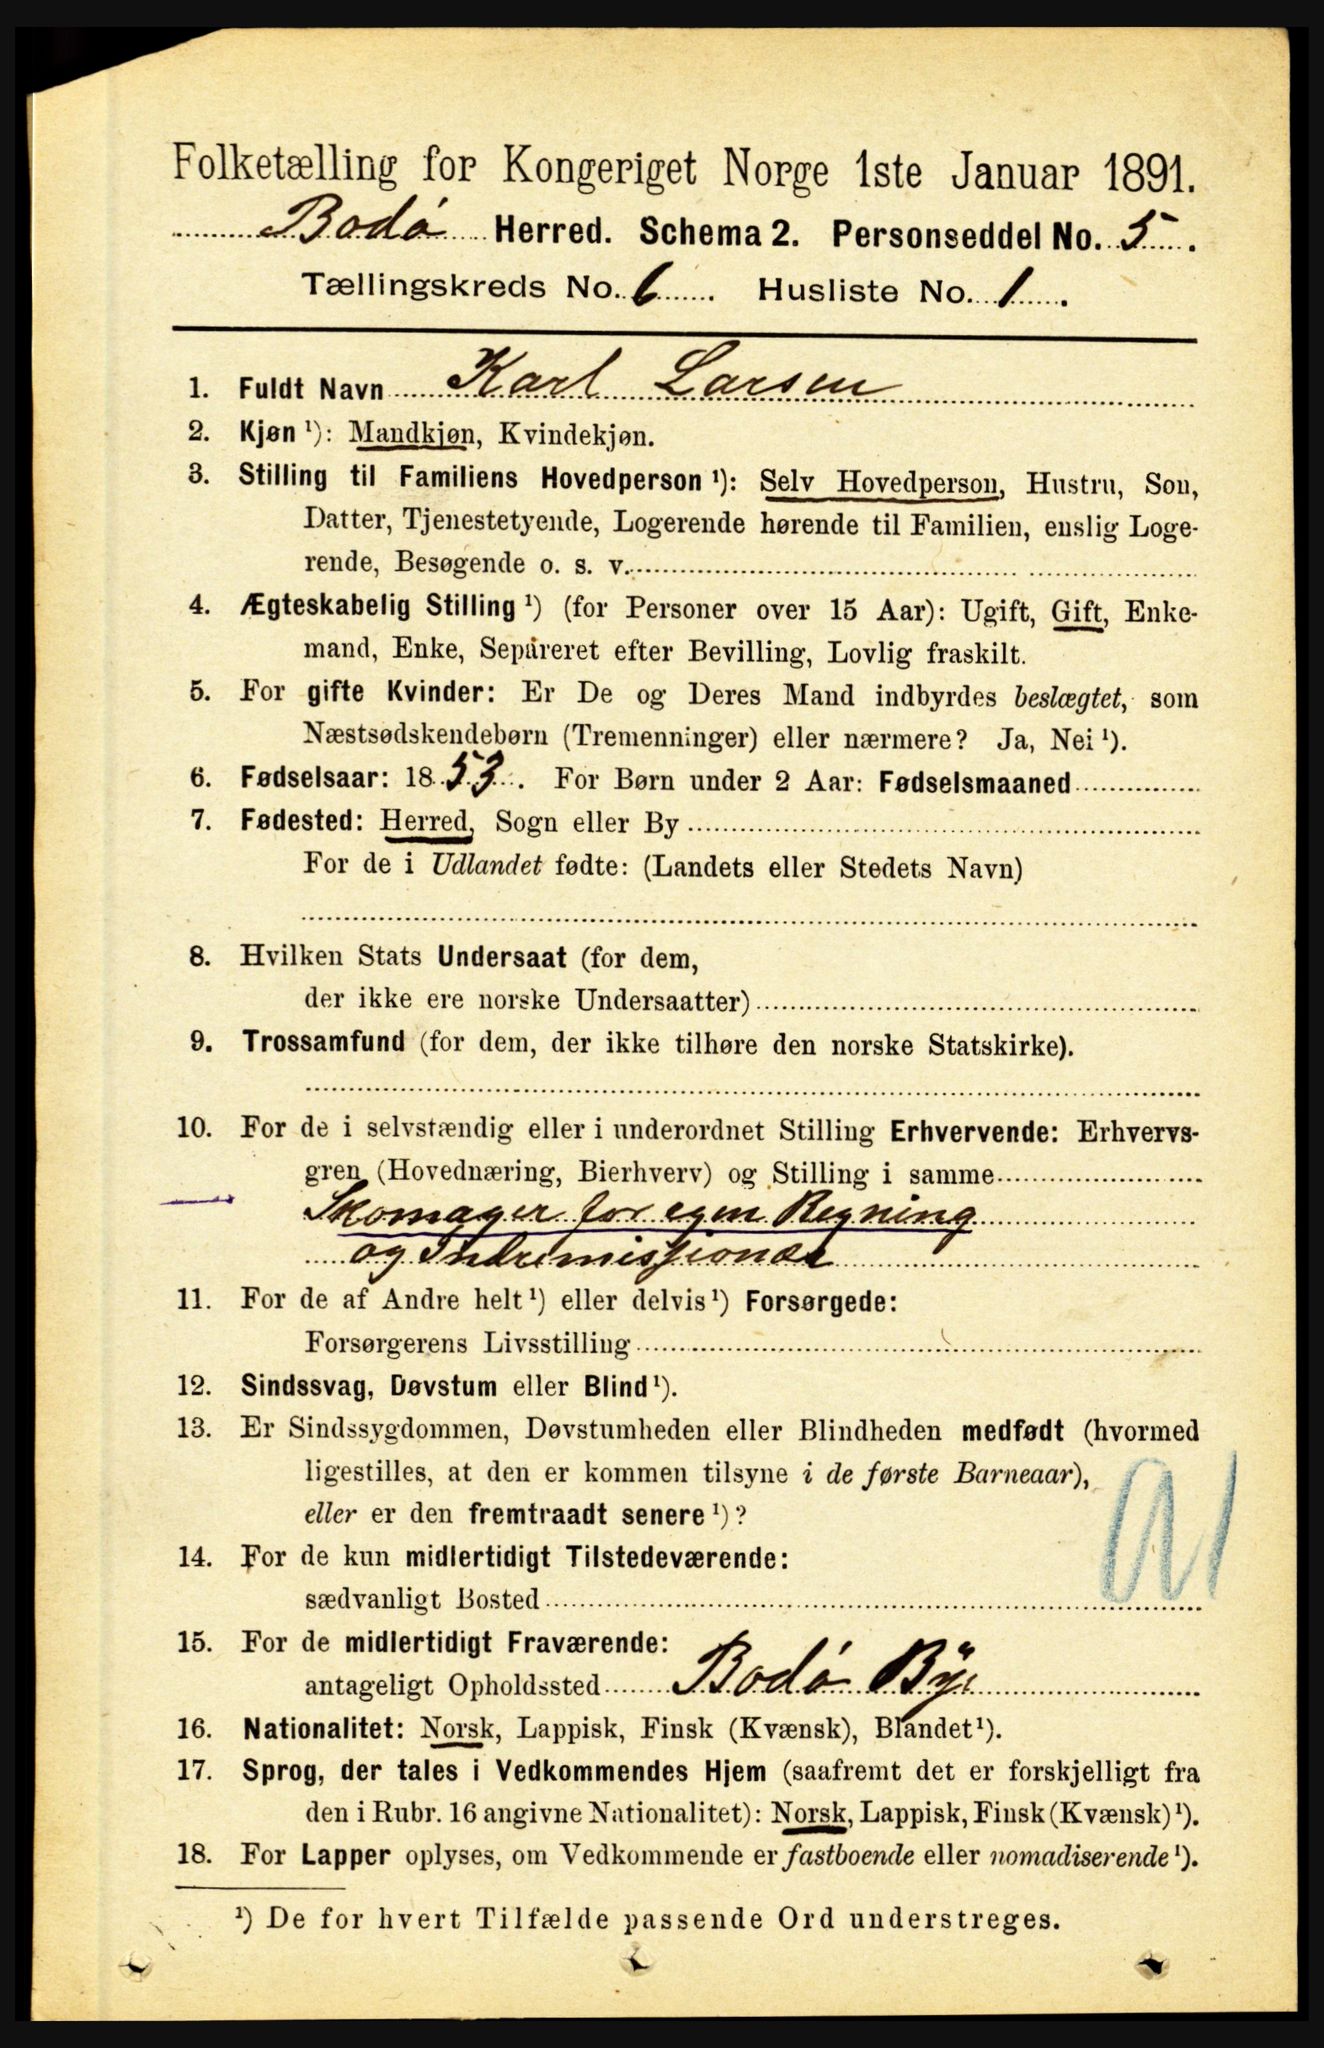 Folketælling for Kongeriget Norge 1ste Januar 1891.
Bodø Herred. Schema 2. Personseddel No. 5.
Tællingskreds No. 6. Husliste No. 1.
1. Fuldt Navn Karl Larsen
2. Kjøn ¹): Mandkjøn, Kvindekjøn.
3. Stilling til Familiens Hovedperson ¹): Selv Hovedperson, Hustru, Søn,
Datter, Tjenestetyende, Logerende hørende til Familien, enslig Loge-
rende, Besøgende o. s. v.
4. Ægteskabelig Stilling ¹) (for Personer over 15 Aar): Ugift, Gift, Enke-
mand, Enke, Separeret efter Bevilling, Lovlig fraskilt.
5. For gifte Kvinder: Er De og Deres Mand indbyrdes beslægtet, som
Næstsødskendebørn (Tremenninger) eller nærmere? Ja, Nei ¹).
6. Fødselsaar: 1853. For Børn under 2 Aar: Fødselsmaaned
7. Fødested: Herred, Sogn eller By
For de i Udlandet fødte: (Landets eller Stedets Navn)
8. Hvilken Stats Undersaat (for dem,
der ikke ere norske Undersaatter)
9. Trossamfund (for dem, der ikke tilhøre den norske Statskirke).
10. For de i selvstændig eller i underordnet Stilling Erhvervende: Erhvervs-
gren (Hovednæring, Bierhverv) og Stilling i samme
Skomager for egen Regning
og Indremissionær
11. For de af Andre helt ¹) eller delvis ¹) Forsørgede:
Forsørgerens Livsstilling
12. Sindssvag, Døvstum eller Blind ¹).
13. Er Sindssygdommen, Døvstumheden eller Blindheden medfødt (hvormed
ligestilles, at den er kommen tilsyne i de første Barneaar),
eller er den fremtraadt senere ¹)?
14. For de kun midlertidigt Tilstedeværende:
sædvanligt Bosted
15. For de midlertidigt Fraværende:
antageligt Opholdssted Bodø By
16. Nationalitet: Norsk, Lappisk, Finsk (Kvænsk), Blandet ¹).
17. Sprog, der tales i Vedkommendes Hjem (saafremt det er forskjelligt fra
den i Rubr. 16 angivne Nationalitet): Norsk, Lappisk, Finsk (Kvænsk) ¹).
18. For Lapper oplyses, om Vedkommende er fastboende eller nomadiserende ¹).
¹) De for hvert Tilfælde passende Ord understreges.